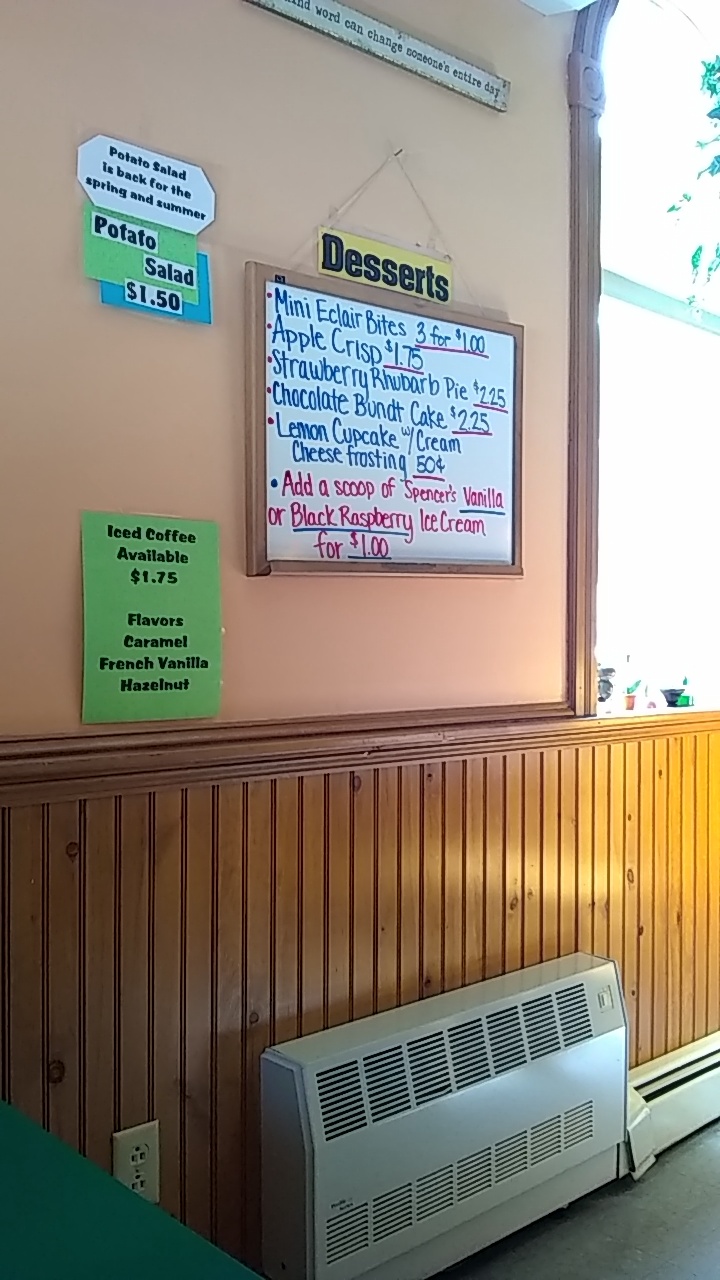 word can change someone's entire day
Potato Salad
is back for the
spring and summer
Potato
Salad
$1.50
Desserts
• Mini Eclair Bites 3 for $1.00
• Apple Crisp $1.75
• Strawberry Rhubarb Pie $2.25
• Chocolate Bundt Cake $2.25
• Lemon Cupcake w/ Cream
Cheese frosting 50¢
• Add a scoop of Spencer's Vanilla
or Black Raspberry Ice Cream
for $1.00
Iced Coffee
Available
$1.75
Flavors
Caramel
French Vanilla
Hazelnut